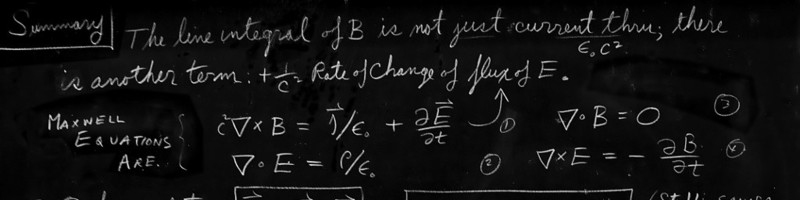 Summary The line integral of B is not just current thru/ε₀c²; there
is another term: + 1/c² Rate of Change of flux of E.
MAXWELL EQUATIONS ARE.
c²∇×B = j⃗/ε₀ + ∂E⃗/∂t ① ∇·B = 0 ③
∇·E = ρ/ε₀ ② ∇×E = - ∂B/∂t ④